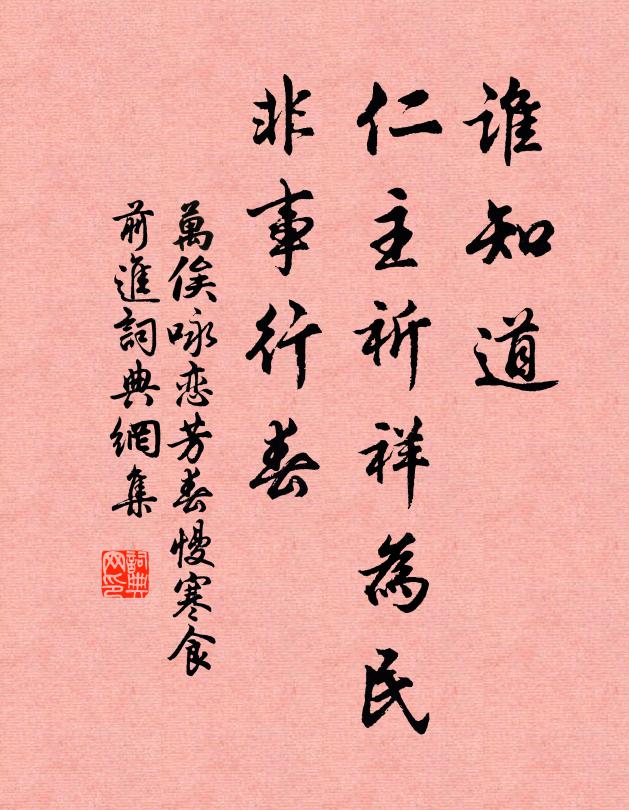 誰知道
仁主祈祥為民
非事行春
萬俟咏恋芳春慢寒食
前進詞典網集
詞典网印